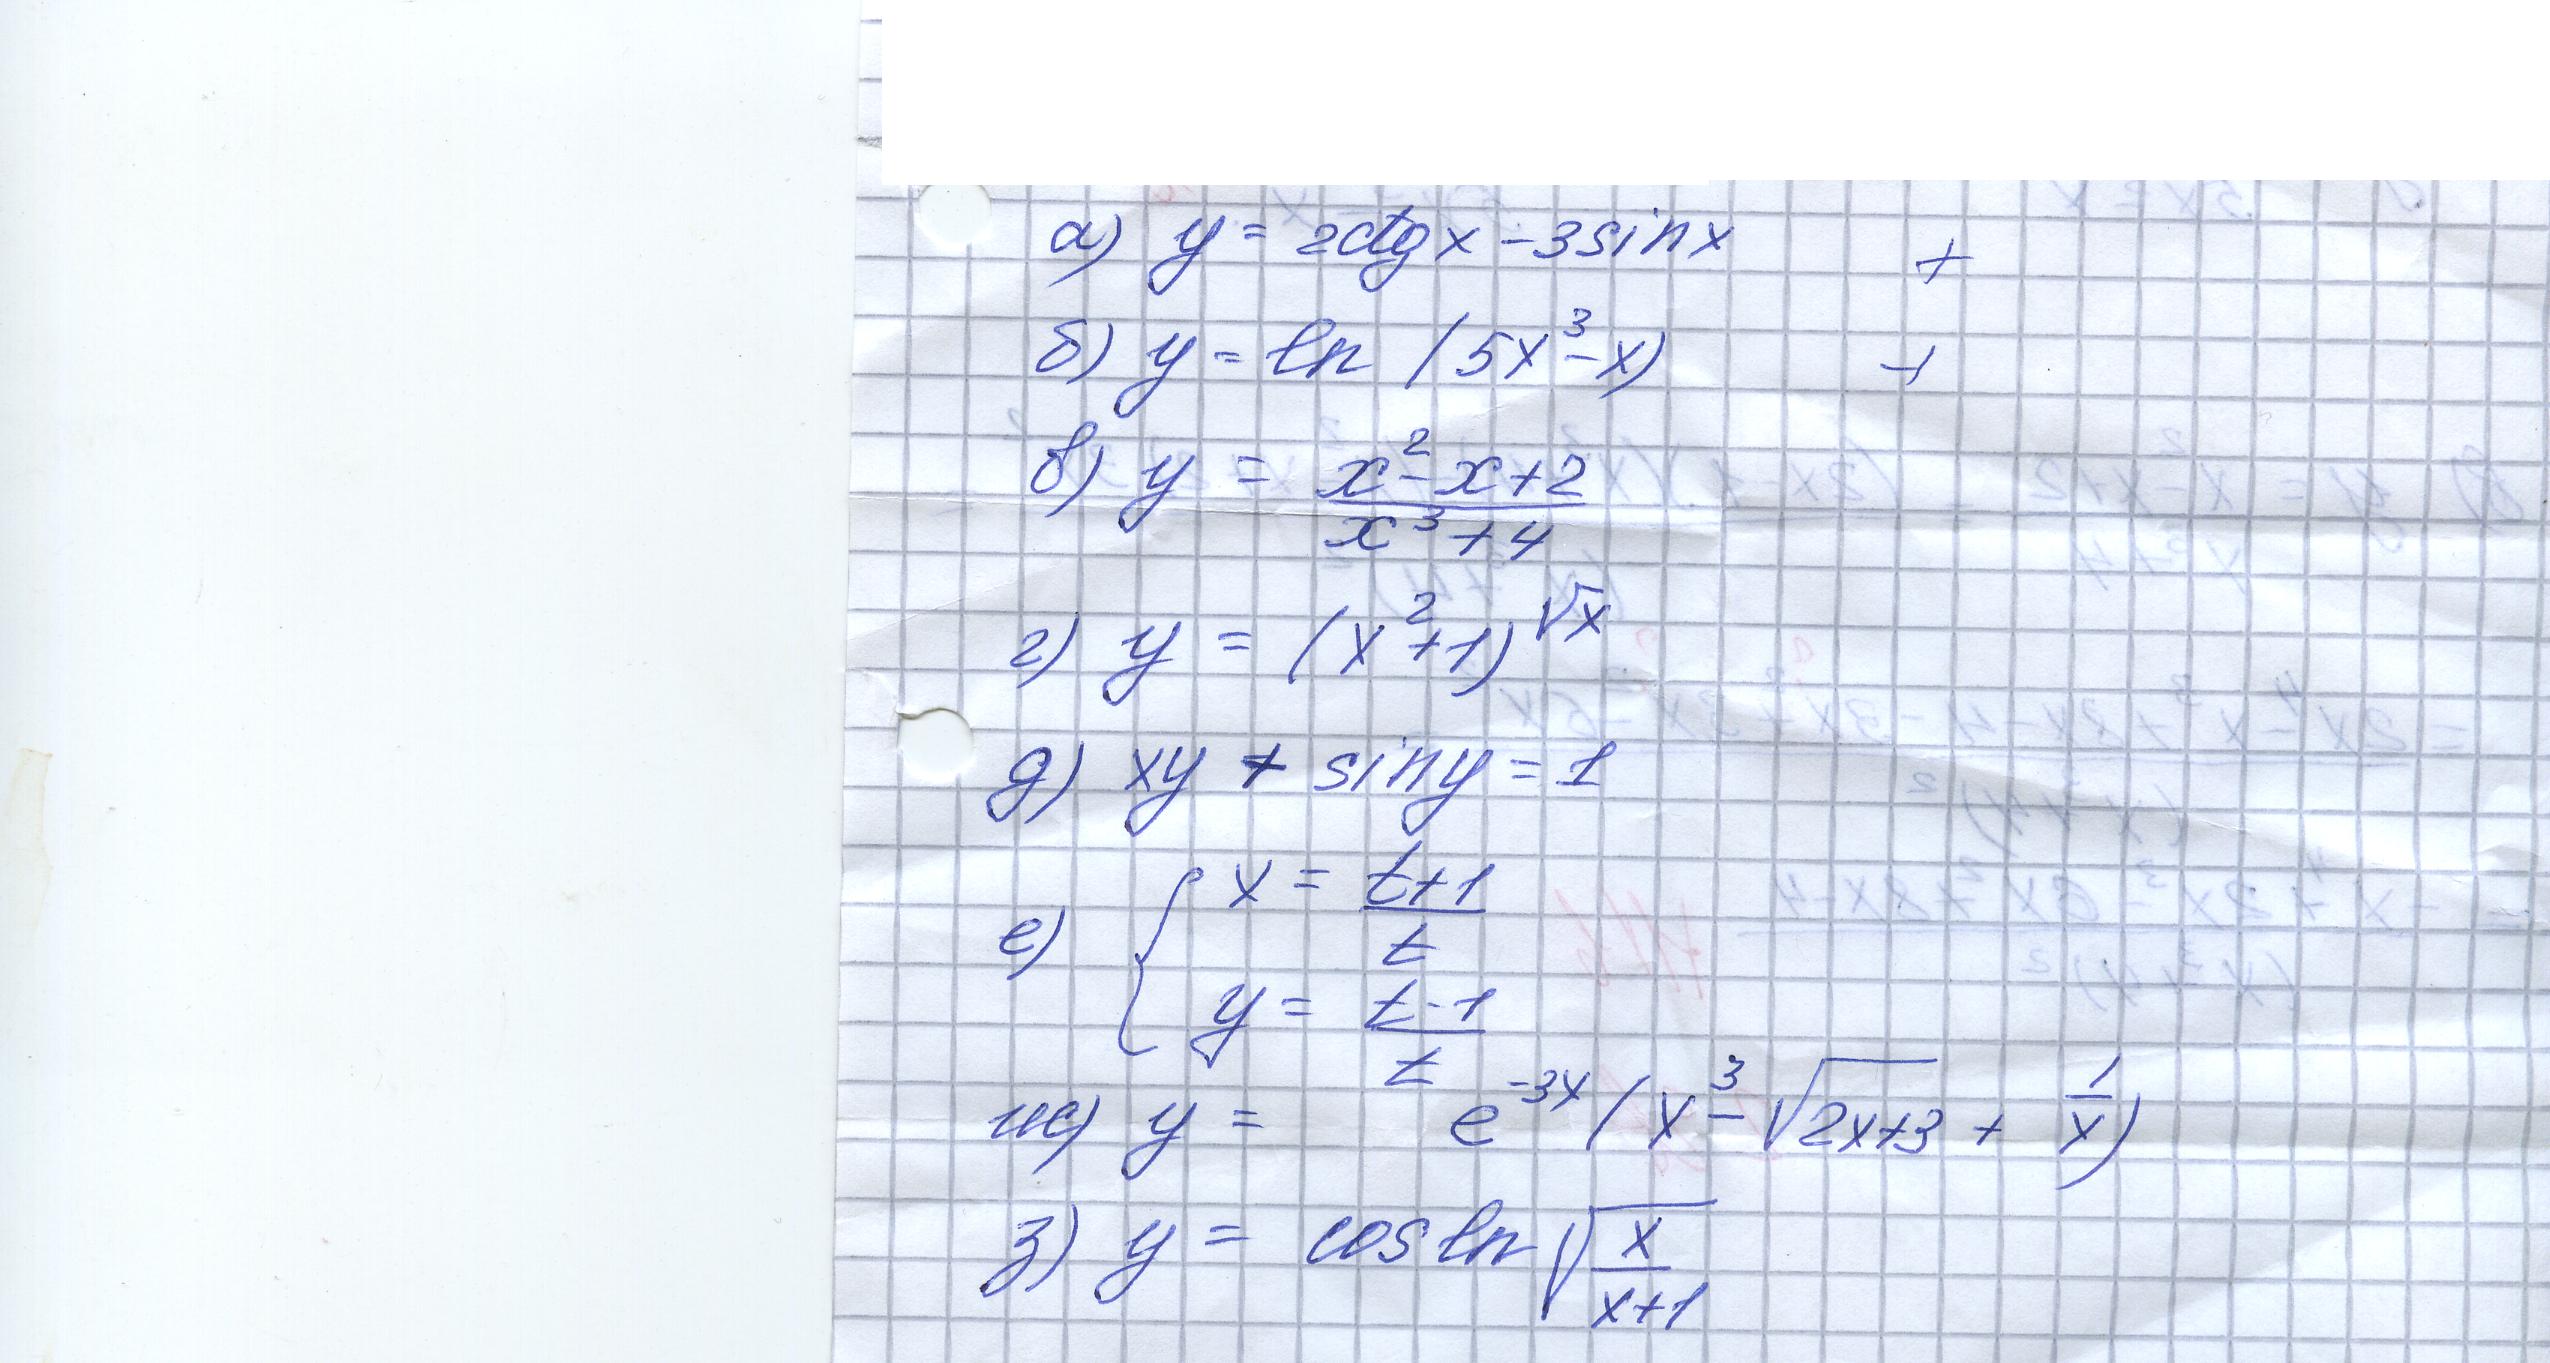 а) y = 2ctgx - 3sinx +
б) y = ln (5x³ - x) +
в) y = x² - x + 2
x³ + 4
г) y = (x² + 1)^√x
д) xy + siny = 1
е) { x = t+1
t
y = t-1
t
ж) y = e^-3x (x³ - √2x+3 + 1/x)
з) y = cos ln √x/x+1